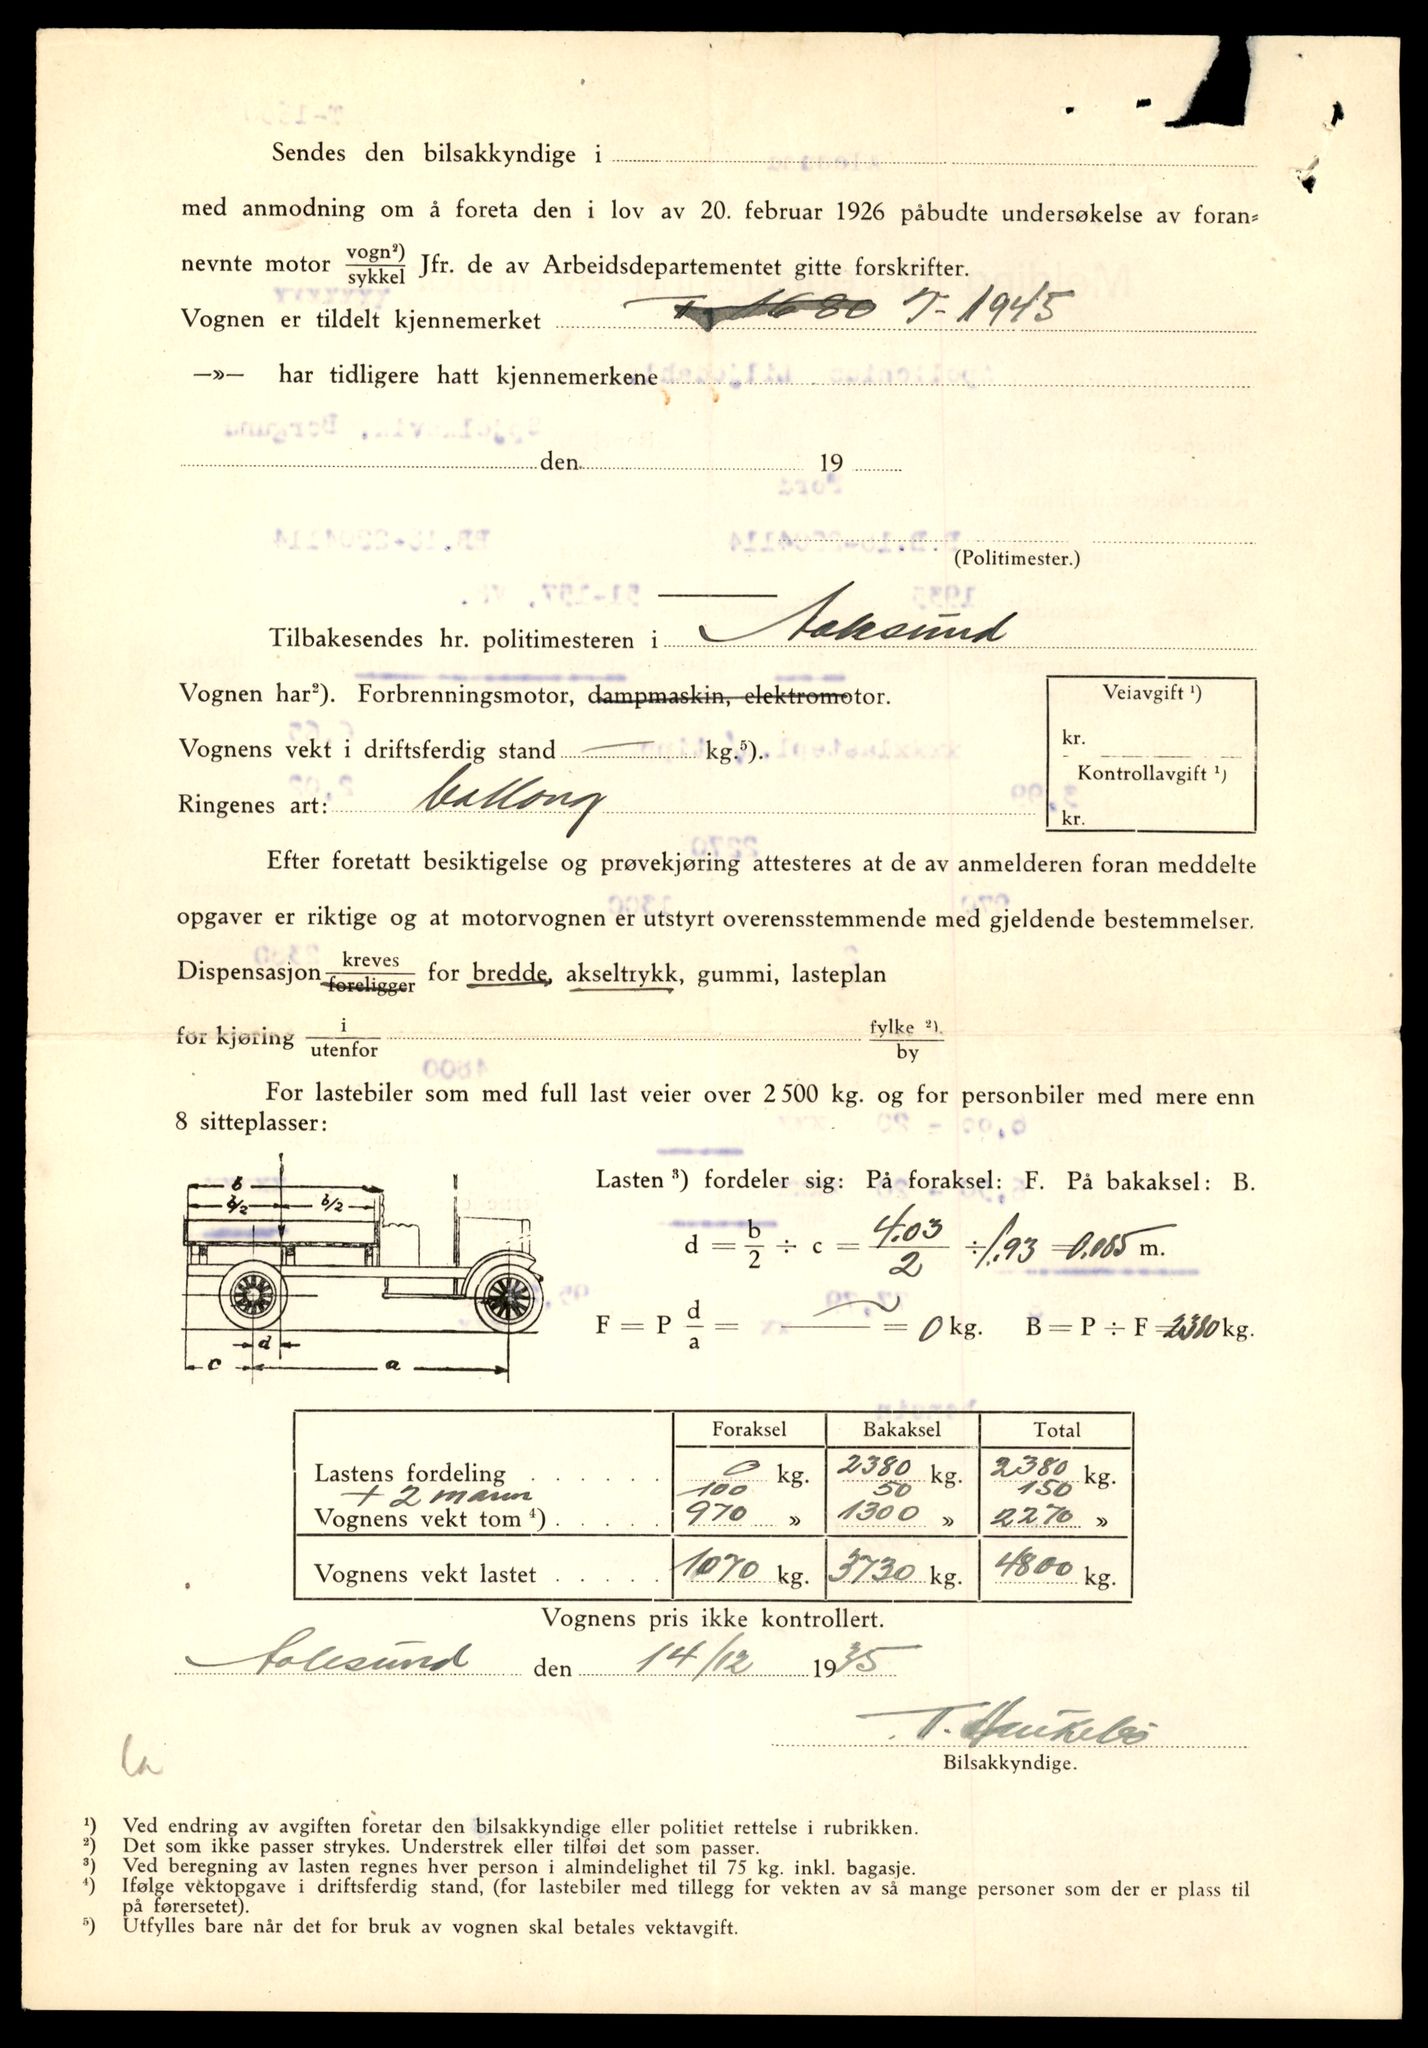 Sendes den bilsakkyndige i
med anmodning om å foreta den i lov av 20. februar 1926 påbudte undersøkelse av foran=
nevnte motor vogn²)/sykkel Jfr. de av Arbeidsdepartementet gitte forskrifter.
Vognen er tildelt kjennemerket T-1680 T-1945
—»— har tidligere hatt kjennemerkene
den 19
(Politimester.)
Tilbakesendes hr. politimesteren i Aalesund
Vognen har²). Forbrenningsmotor, dampmaskin, elektromotor.
Veiavgift ¹)
kr.
Vognens vekt i driftsferdig stand — kg.⁵).
Kontrollavgift ¹)
kr.
Ringenes art: ballong
Efter foretatt besiktigelse og prøvekjøring attesteres at de av anmelderen foran meddelte
opgaver er riktige og at motorvognen er utstyrt overensstemmende med gjeldende bestemmelser.
Dispensasjon kreves/foreligger for bredde, akseltrykk, gummi, lasteplan
for kjøring i/utenfor fylke ²)./by
For lastebiler som med full last veier over 2500 kg. og for personbiler med mere enn
8 sitteplasser:
b
b/2 b/2
d
c a
Lasten ³) fordeler sig: På foraksel: F. På bakaksel: B.
d = b/2 ÷ c = 4.03/2 ÷ 1.93 = 0.085 m.
F = P d/a = — = 0 kg. B = P ÷ F = 2380 kg.
Foraksel Bakaksel Total
Lastens fordeling . . . . . . 0 kg. 2380 kg. 2380 kg.
+ 2 mann 100 50 150
Vognens vekt tom ⁴) . . . . . 970 » 1300 » 2270 »
Vognens vekt lastet . . . . . 1070 kg. 3730 kg. 4800 kg.
Vognens pris ikke kontrollert.
Aalesund den 14/12 1935
Bilsakkyndige.
¹) Ved endring av avgiften foretar den bilsakkyndige eller politiet rettelse i rubrikken.
²) Det som ikke passer strykes. Understrek eller tilføi det som passer.
³) Ved beregning av lasten regnes hver person i almindelighet til 75 kg. inkl. bagasje.
⁴) Ifølge vektopgave i driftsferdig stand, (for lastebiler med tillegg for vekten av så mange personer som der er plass til
på førersetet).
⁵) Utfylles bare når det for bruk av vognen skal betales vektavgift.